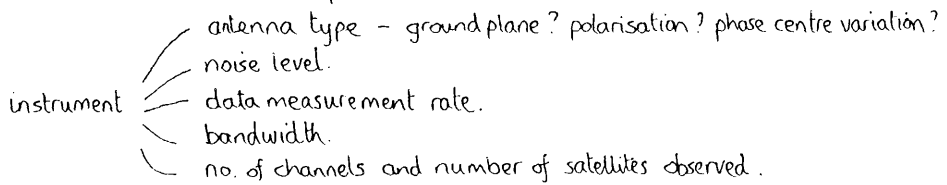 antenna type - ground plane? polarisation? phase centre variation?
noise level.
instrument data measurement rate.
bandwidth.
no. of channels and number of satellites observed.